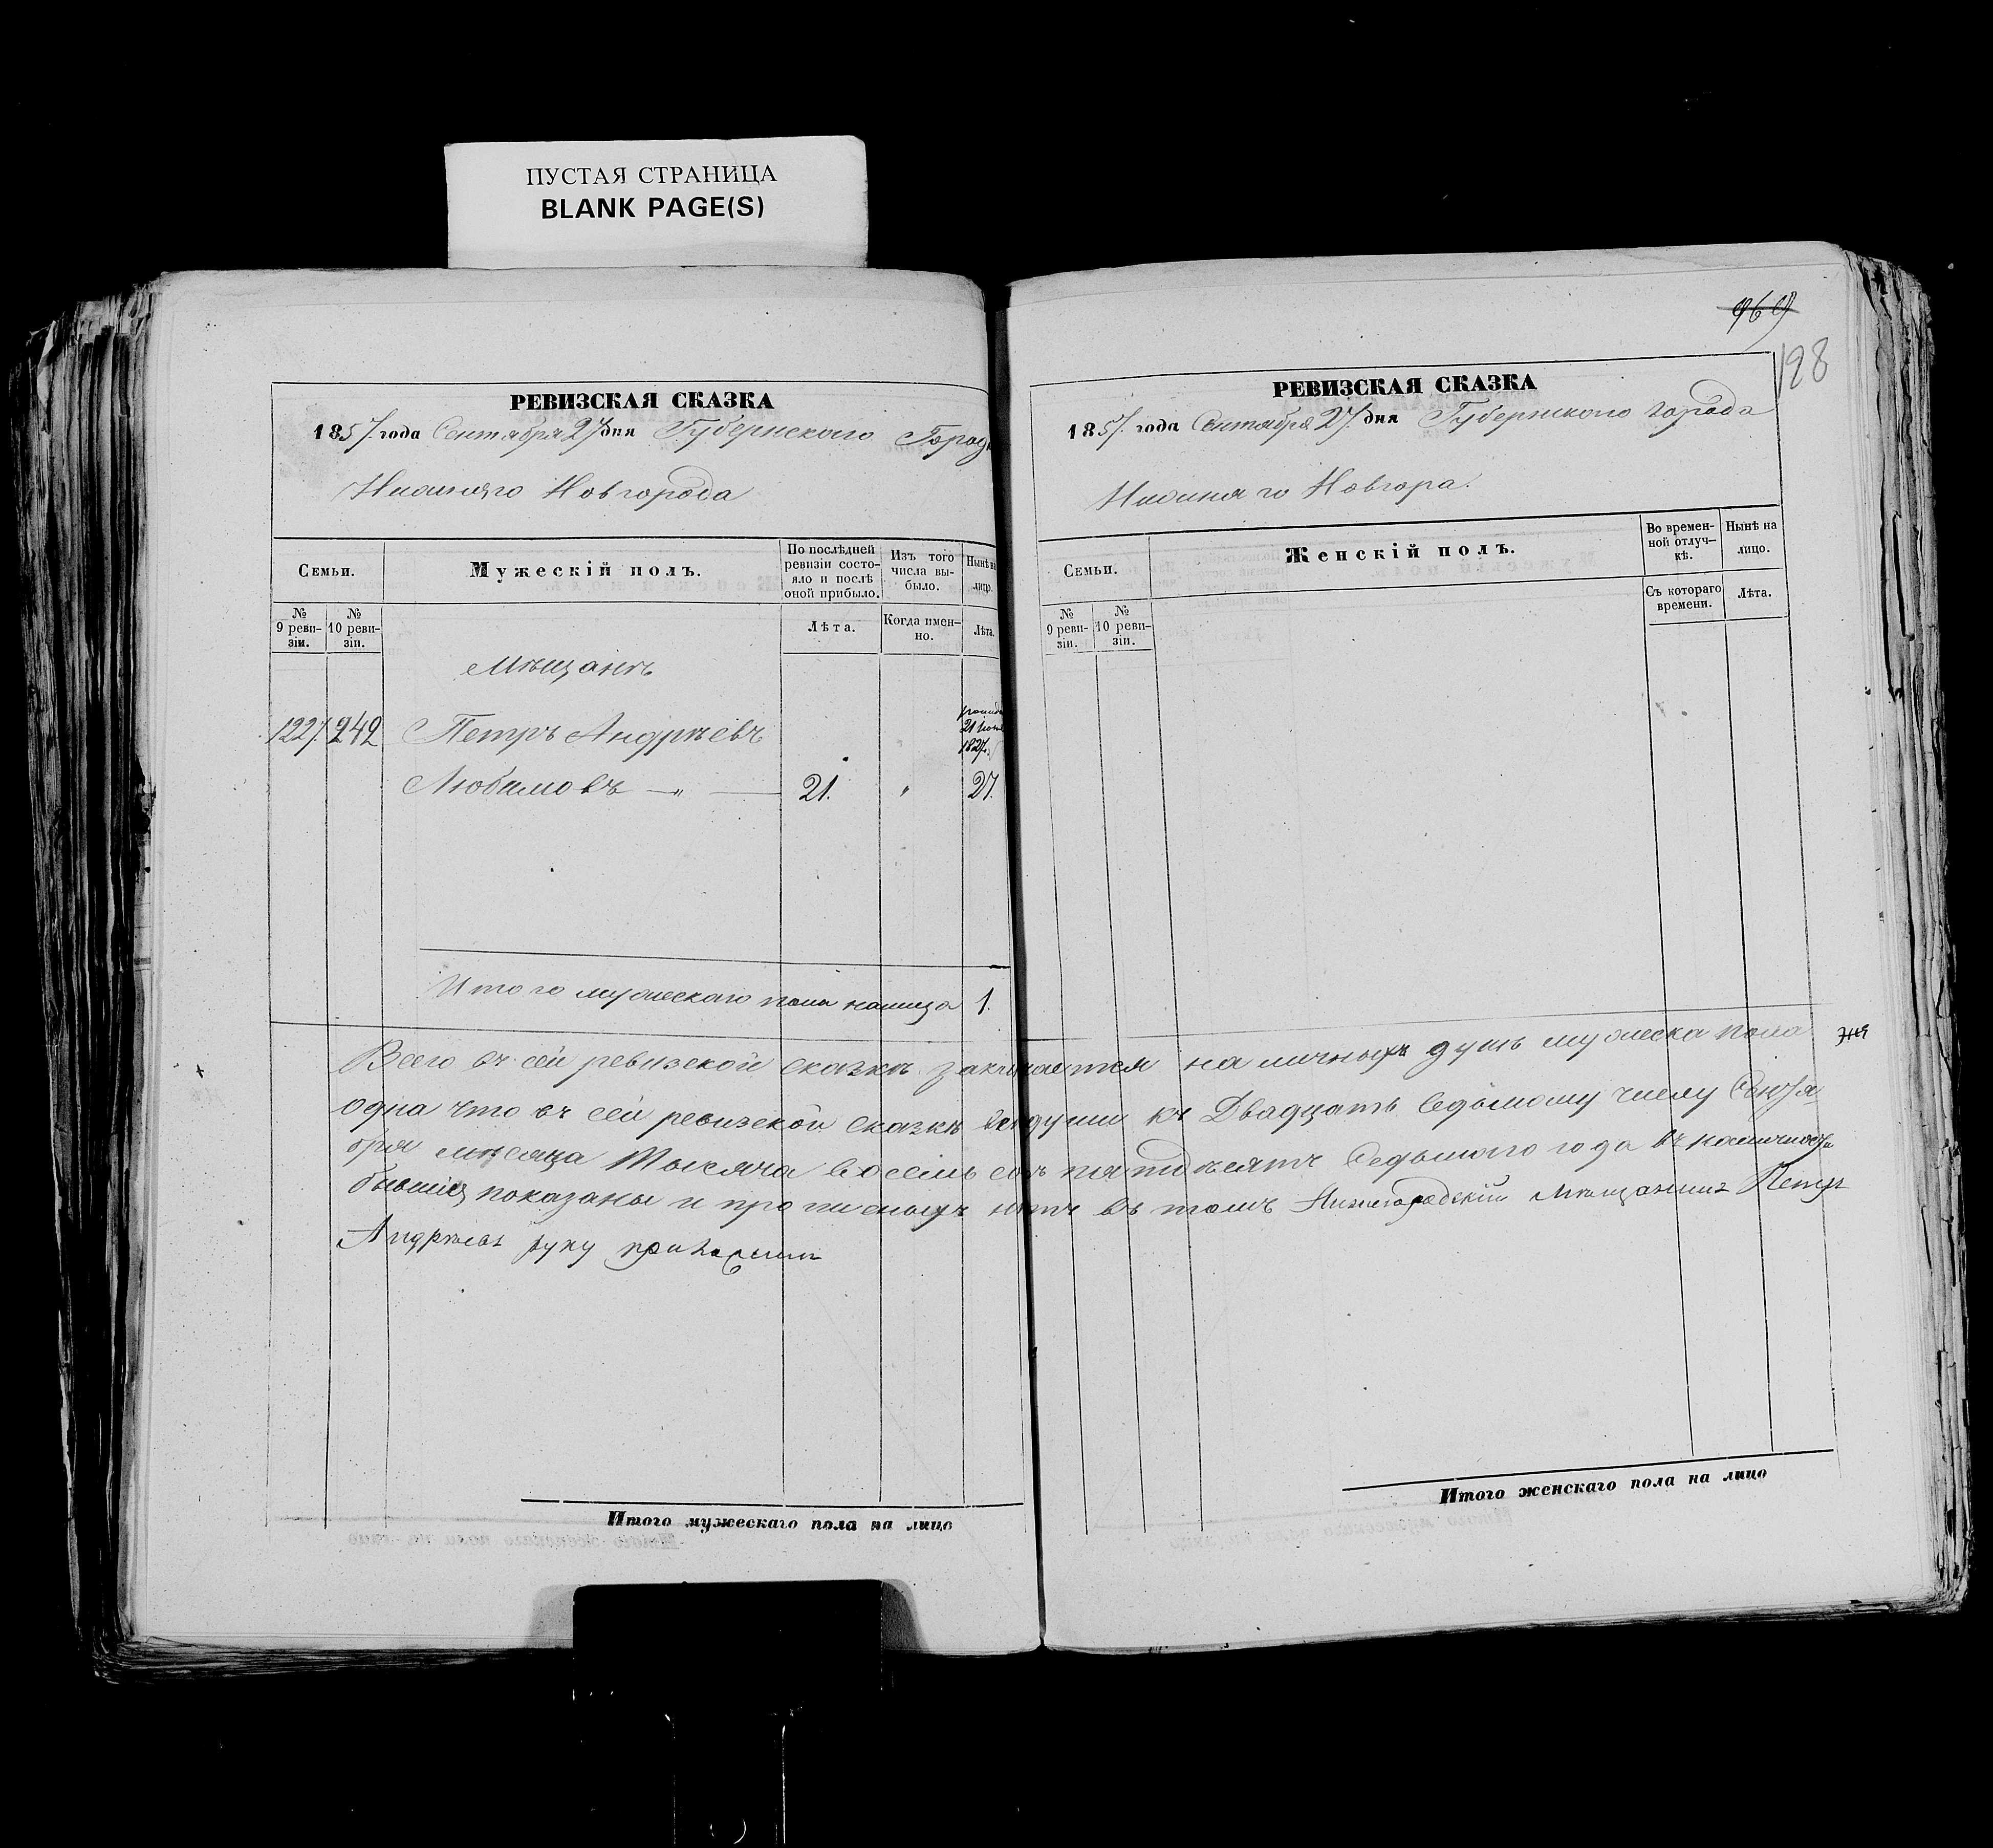 ПУСТАЯ СТРАНИЦА
BLANK PAGE(S)
РЕВИЗСКАЯ СКАЗКА
1857. года Сентября 27 дня Губернскаго Города
Нижняго Новгорода
Семьи.
Мужескій полъ.
По послѣдней ревизіи состо-
яло и послѣ оной прибыло.
Изъ того числа вы-
было.
Нынѣ на лицо.
№ 9 реви-
зіи.
№ 10 реви-
зіи.
Лѣта.
Когда имен-
но.
Лѣта.
Мѣщанъ
1227. 242 Петръ Андрѣевъ
21
1827.
Любимовъ — „ — 21. „ 27.
Итого мужескаго пола налицо 1.
969
198
РЕВИЗСКАЯ СКАЗКА
1857. года Сентября 27. дня Губернскаго города
Нижняго Новгора.
Семьи.
Женскій полъ.
Во времен-
ной отлуч-
кѣ.
Нынѣ на лицо.
№ 9 реви-
зіи.
№ 10 реви-
зіи.
Съ котораго времени.
Лѣта.
Всего въ сей ревизской сказкѣ заключается на личныхъ душъ мужеска пола
одна что въ сей ревизской сказкѣ все души къ Двадцать Седьмому числу Сентя
бря мѣсяца Тысяча восемь сотъ пятдесятъ Седьмого года въ наличности
бывшия показаны и прописныхъ нетъ въ томъ Нижегородский мѣщанинъ Петръ
Андрѣевъ руку приложилъ
Итого мужескаго пола на лицо
Итого женскаго пола на лицо